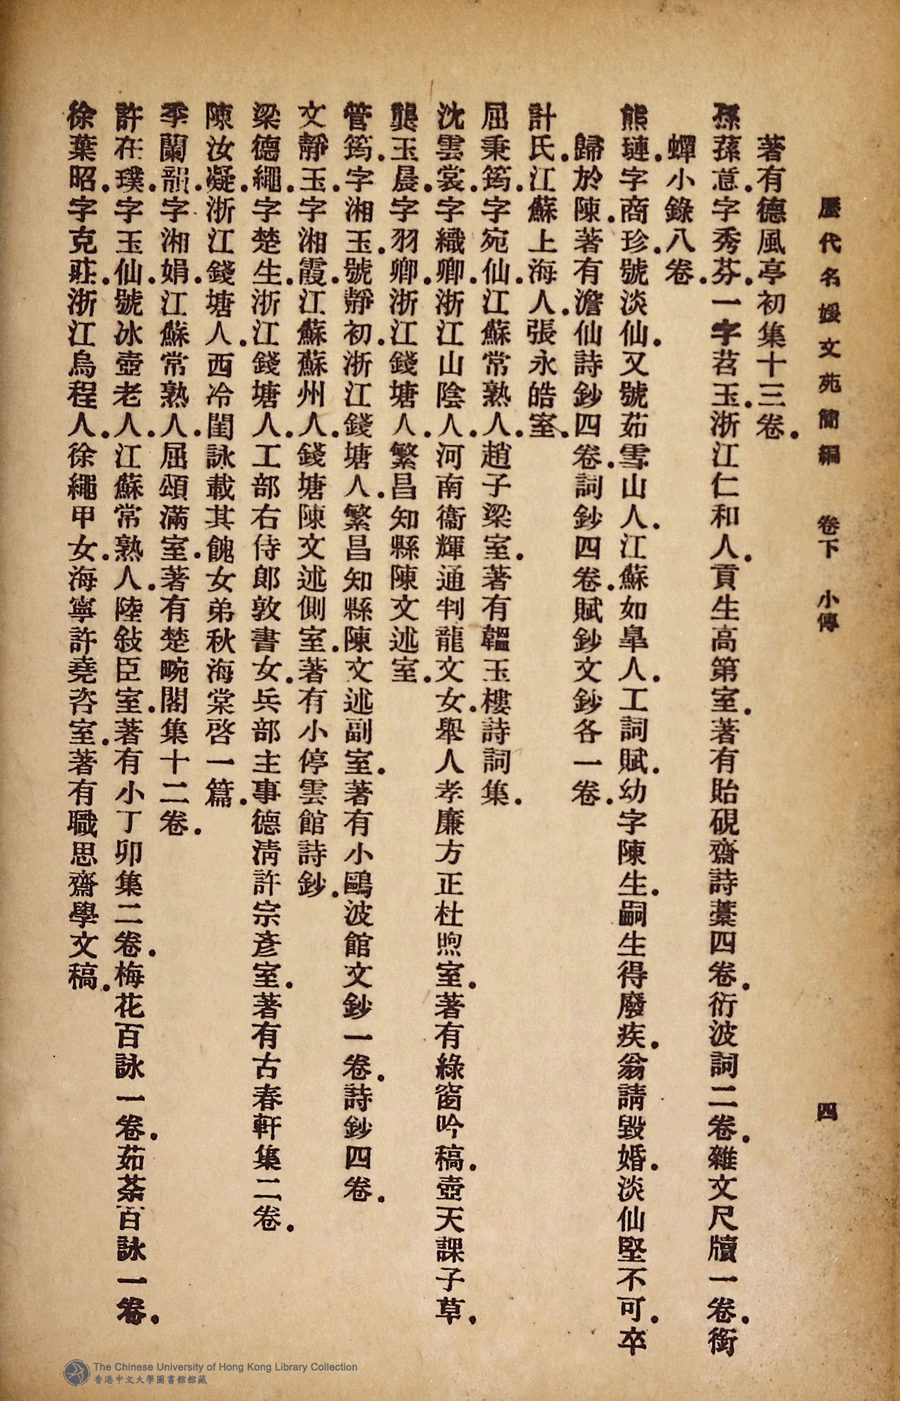 歷代名媛文苑簡編 卷下 小傳 四
著有德風亭初集十三卷．
孫蓀意．字秀芬．一字苕玉．浙江仁和人．貢生高第室．著有貽硯齋詩藁四卷．衍波詞二卷．雜文尺牘一卷．銜
蟬小錄八卷．
熊璉．字商珍．號淡仙．又號茹雪山人．江蘇如臯人．工詞賦．幼字陳生．嗣生得廢疾．翁請毀婚．淡仙堅不可．卒
歸於陳．著有澹仙詩鈔四卷．詞鈔四卷．賦鈔文鈔各一卷．
計氏．江蘇上海人．張永皓室．
屈秉筠．字宛仙．江蘇常熟人．趙子梁室．著有韞玉樓詩詞集．
沈雲裳．字織卿．浙江山陰人．河南衞輝通判龍文女．舉人孝廉方正杜煦室．著有綠窗吟稿．壺天課子草．
龔玉晨．字羽卿．浙江錢塘人．繁昌知縣陳文述室．
管筠．字湘玉．號靜初．浙江錢塘人．繁昌知縣陳文述副室．著有小鷗波館文鈔一卷．詩鈔四卷．
文靜玉．字湘霞．江蘇蘇州人．錢塘陳文述側室．著有小停雲館詩鈔．
梁德繩．字楚生．浙江錢塘人．工部右侍郎敦書女．兵部主事德淸許宗彥室．著有古春軒集二卷．
陳汝凝．浙江錢塘人．西冷閨詠載其餽女弟秋海棠啓一篇．
季蘭韻．字湘娟．江蘇常熟人．屈頌滿室．著有楚畹閣集十二卷．
許在璞．字玉仙．號冰壺老人．江蘇常熟人．陸敍臣室．著有小丁卯集二卷．梅花百詠一卷．茹荼百詠一卷．
徐葉昭．字克莊．浙江烏程人．徐繩甲女．海寧許堯咨室．著有職思齋學文稿．
The Chinese University of Hong Kong Library Collection
香港中文大學圖書館館藏